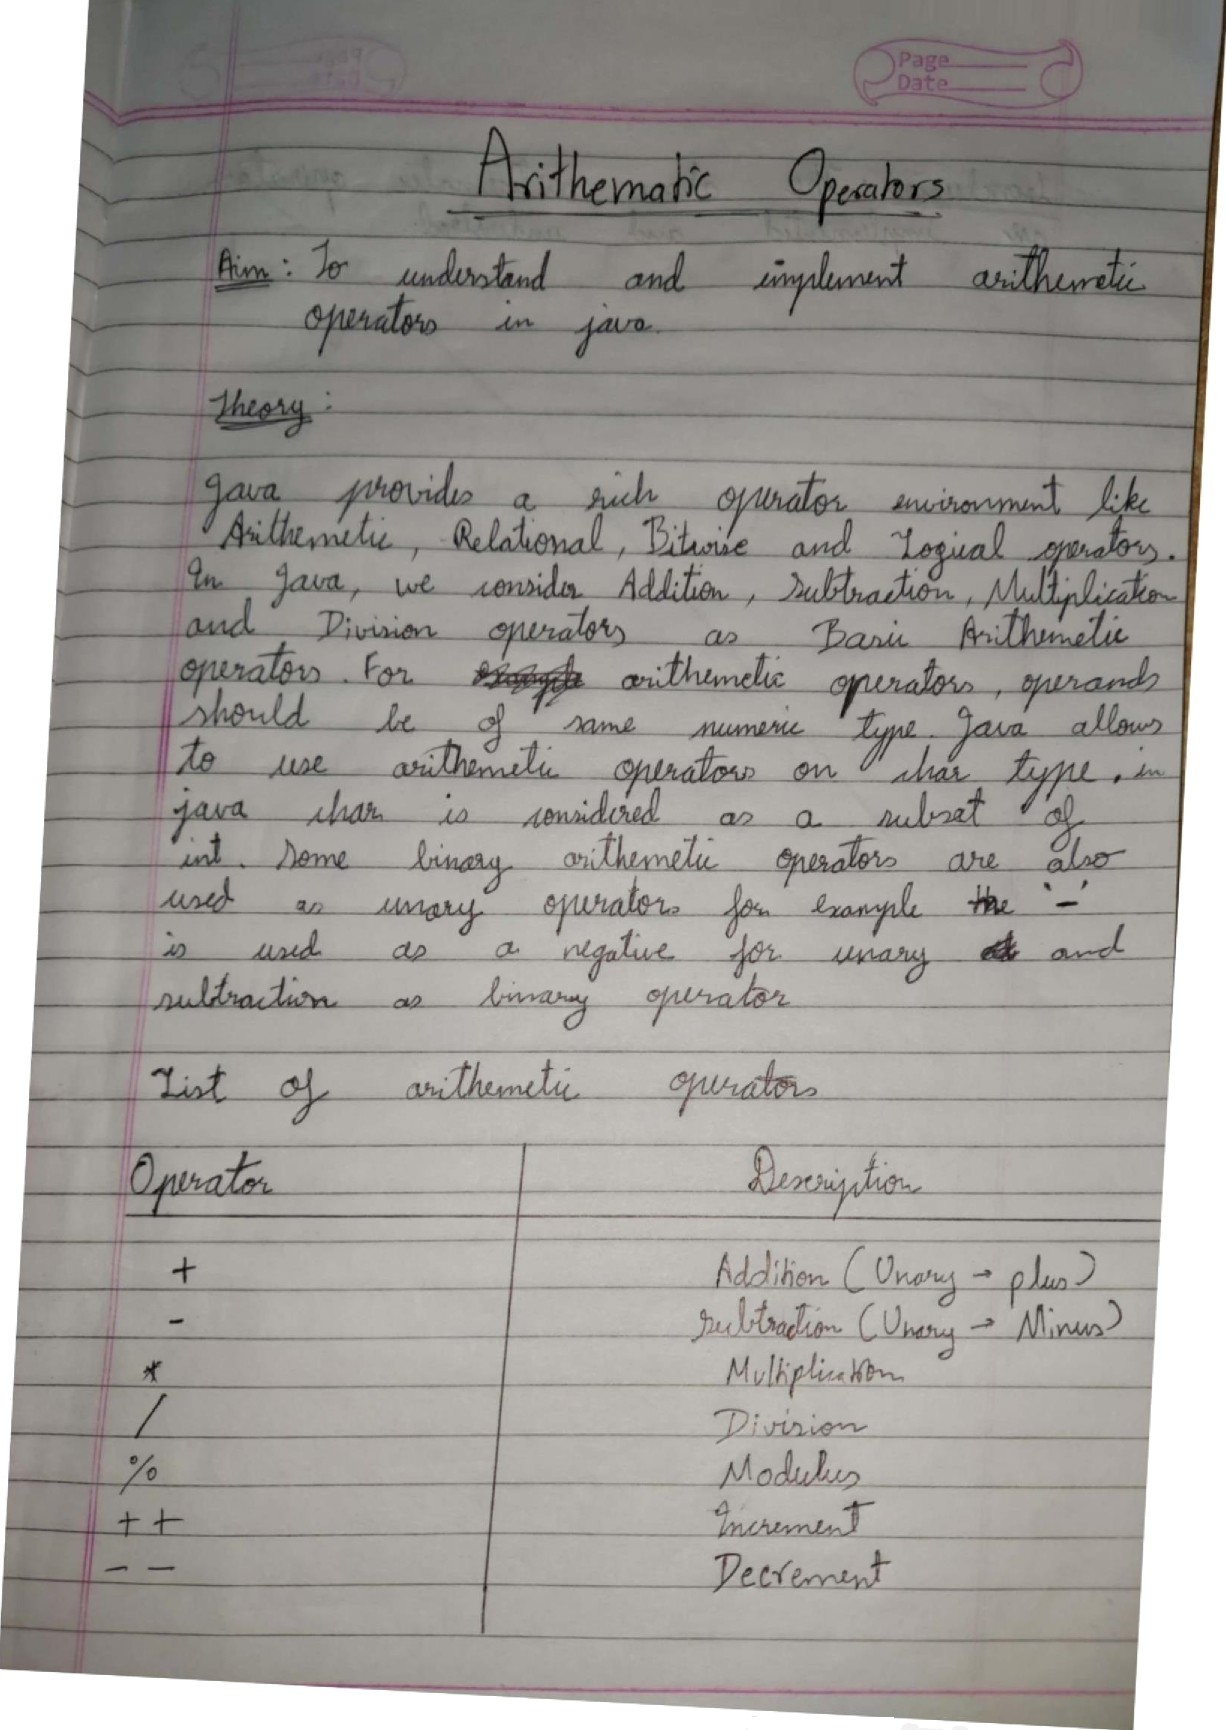 Page
Date
Arithematic Operators
Aim : To understand and implement arithemetic
operators in java.
Theory :
Java provides a rich operator environment like
Arithemetic, Relational, Bitwise and Logical operators.
In Java, we consider Addition, Subtraction, Multiplication
and Division operators as Basic Arithemetic
operators. For arithemetic operators, operands
should be of same numeric type. Java allows
to use arithemetic operators on char type, in
java char is considered as a subset of
int. Some binary arithemetic operators are also
used as unary operators for example the '-'
is used as a negative for unary and
subtraction as binary operator
List of arithemetic operators
Operator Description
+ Addition (Unary → plus)
- Subtraction (Unary → Minus)
* Multiplication
/ Division
% Modulus
++ Increment
-- Decrement